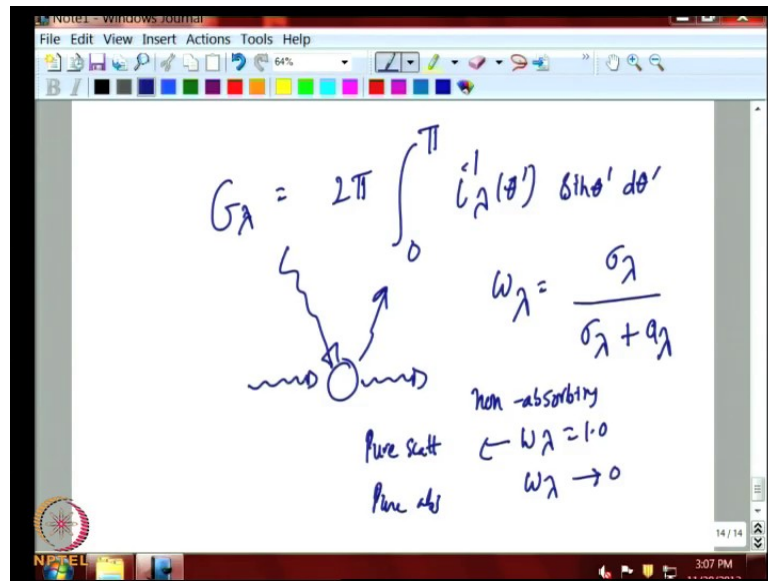 Note1 - Windows Journal
File Edit View Insert Actions Tools Help
64%
B I
G_λ = 2π ∫_0^π i'_λ(θ') sinθ' dθ'
ω_λ = σ_λ / (σ_λ + a_λ)
non-absorbing
Pure scatt ← ω_λ = 1.0
Pure abs ω_λ → 0
14 / 14
NPTEL
3:07 PM